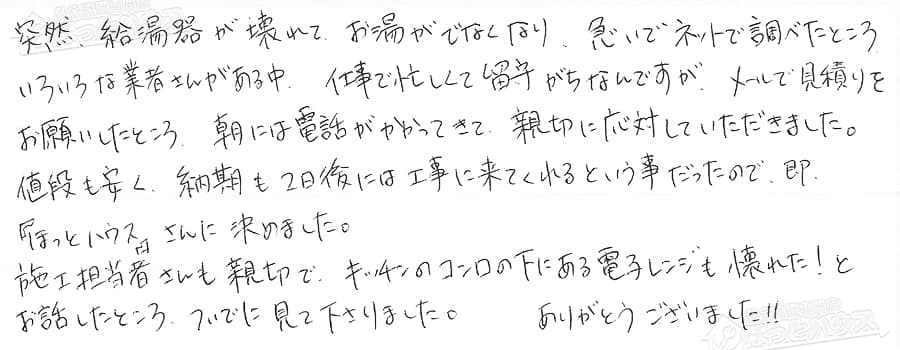 突然、給湯器が壊れて、お湯がでなくなり、急いでネットで調べたところ
いろいろな業者さんがある中、仕事で忙しくて留守がちなんですが、メールで見積りを
お願いしたところ、朝には電話がかかってきて、親切に応対していただきました。
値段も安く、納期も2日後には工事に来てくれるという事だったので、即、
『ほっとハウス』さんに決めました。
施工担当者さんも親切で、キッチンのコンロの下にある電子レンジも壊れた!と
お話したところ、ついでに見て下さりました。 ありがとうございました!!